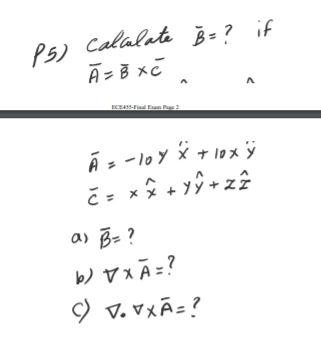 P5) Calculate B̄=? if
Ā = B̄ × C̄
ECE455-Final Exam Page 2
Ā = -10 y x̂ + 10 x ŷ
C̄ = x x̂ + y ŷ + z ẑ
a) B̄=?
b) ∇ × Ā=?
c) ∇. ∇×Ā=?